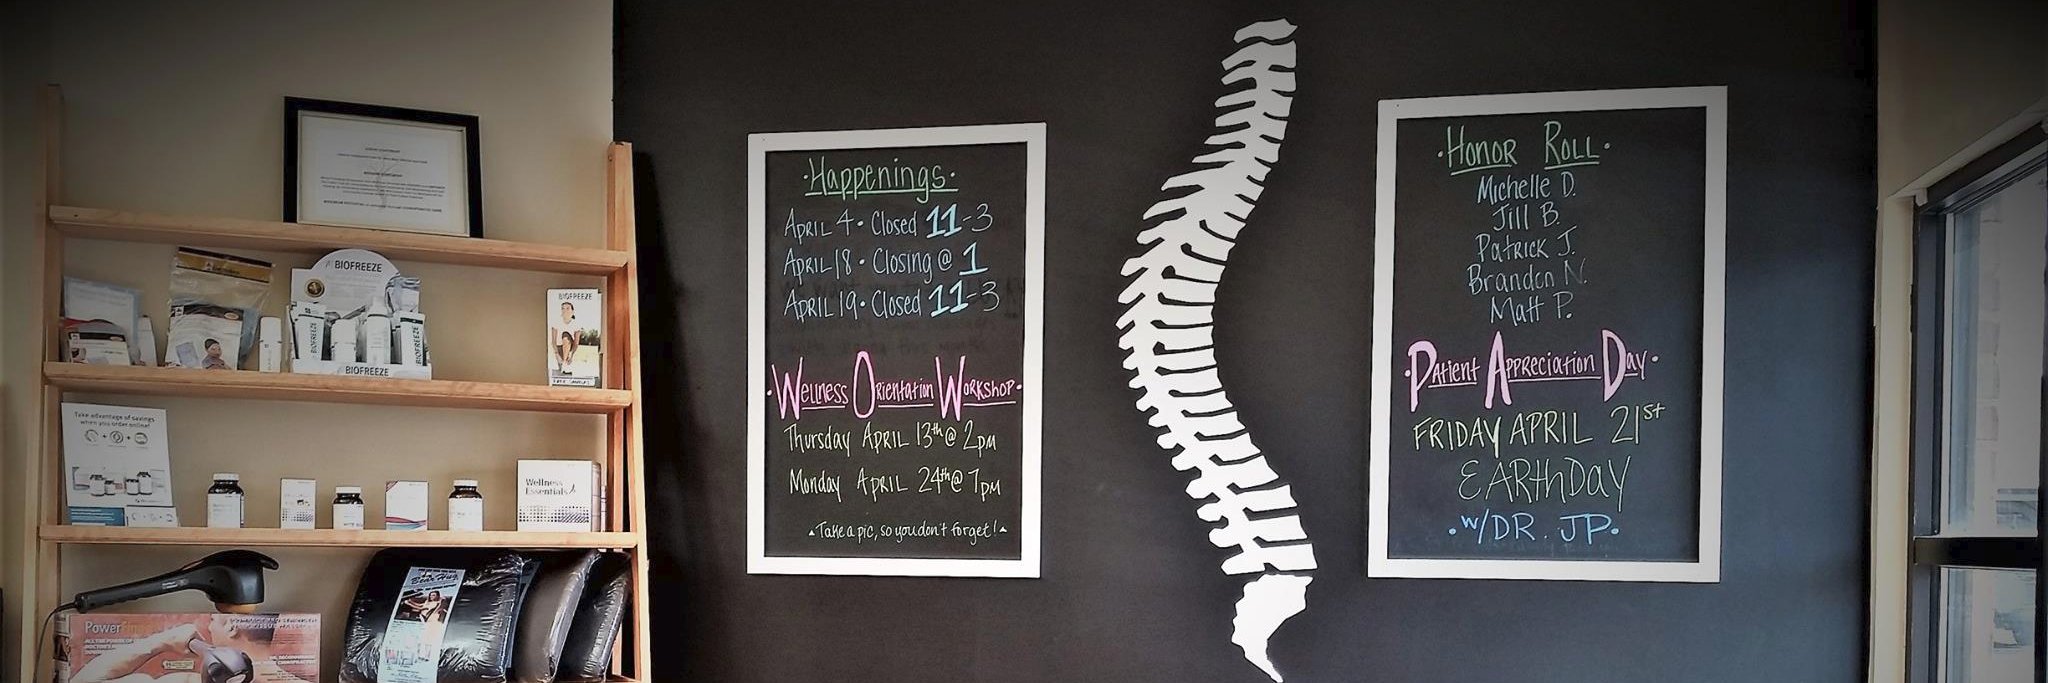 BIOFREEZE
BIOFREEZE
BIOFREEZE
BIOFREEZE
BIOFREEZE
Take advantage of savings
when you order online!
Wellness
Essentials
Power
Bear Hug
·Happenings·
April 4 · Closed 11-3
April 18 · Closing @ 1
April 19 · Closed 11-3
·Wellness Orientation Workshop·
Thursday April 13th @ 2pm
Monday April 24th @ 7pm
Take a pic, so you don't forget!
·Honor Roll·
Michelle D.
Jill B.
Patrick J.
Brandon N.
Matt P.
·Patient Appreciation Day·
FRIDAY APRIL 21st
EARthDAY
·w/DR. JP·